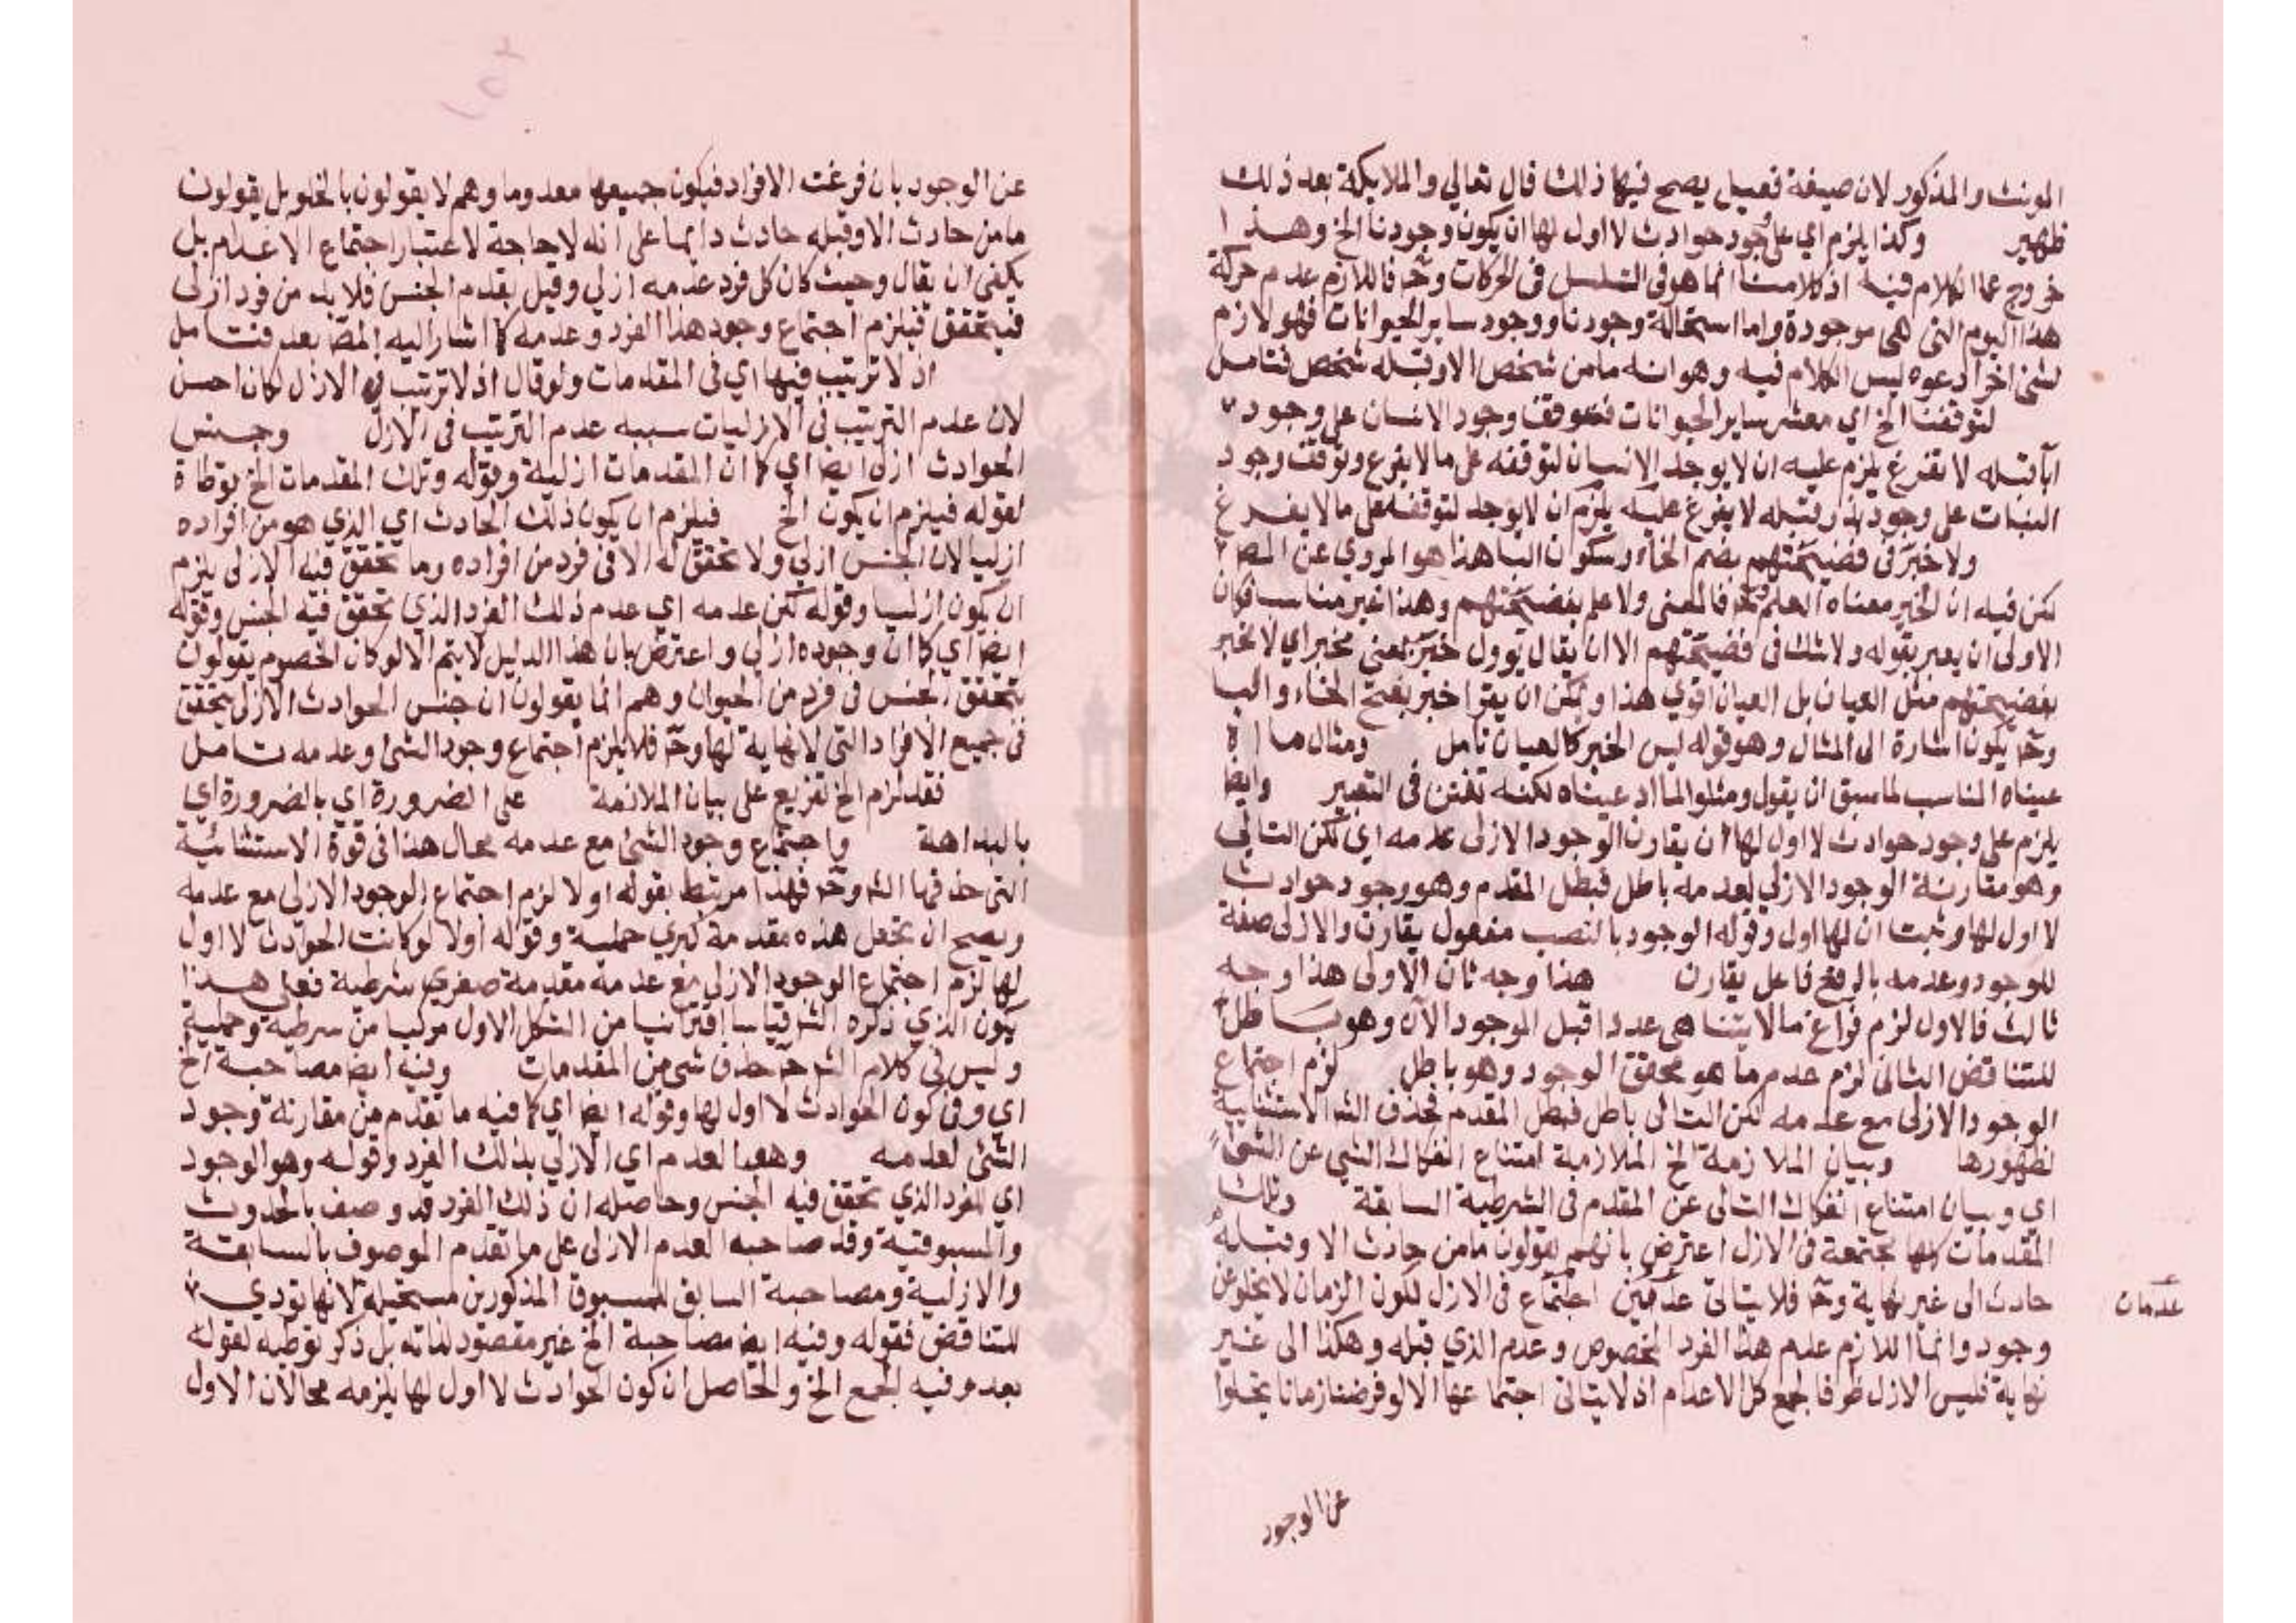 المونث والمذكور لان صيغة فعيل يصح فيها ذلك قال تعالي والملايكة بعد ذلك
ظهير وكذا يلزم اي على وجود حوادث لا اول لها ان يكون وجودنا الخ وهذا
خروج عما الكلام فيه اذ كلامنا انما هو في التسلسل في الحركات وح فاللازم عدم حركة
هذا اليوم التي هي موجودة واما استحالة وجودنا ووجود ساير الحيوانات فهو لازم
لشئ اخر ادعوه ليس الكلام فيه وهو انه ما من شخص الا وقبله شخص فتامل
لتوقفنا الخ اي معشر ساير الحيوانات فتوقف وجود الانسان على وجود
اباقبله لا تفرغ يلزم عليه ان لا يوجد الانسان لتوقفه على ما لا يفرغ وتوقف وجود
النبات على وجود بذر قبله لا يفرغ عليه يلزم ان لا يوجد لتوقفه على ما لا يفرغ
ولا خبر في فضيحتهم بضم الخاء وسكون البا هذا هو المروي عن المص
لكن فيه ان الخبر معناه العلم فالمعنى ولا علم بفضيحتهم وهذا غير مناسب فكان
الاولى ان يعبر بقوله ولا شك في فضيحتهم الا ان يقال يوول خبر بمعني مخبر اي لا مخبر
بفضيحتهم مثل العيان بل العيان اقوي هذا ويمكن ان يقرا خبر بفتح الخاء والبا
وح يكون اشارة الى المثال وهو قوله ليس الخبر كالعيان تامل ومثال ما اد
عيناه المناسب لما سبق ان يقول ومثلوا لما ادعيناه لكنه تفنن في التعبير وايضا
يلزم على وجود حوادث لا اول لها ان يقارن الوجود الازلى عدمه اي لكن التالي
وهو مقارنة الوجود الازلي لعدمه باطل فبطل المقدم وهو وجود حوادث
لا اول لها وثبت ان لها اول وقوله الوجود بالنصب مفعول يقارن والازلى صفة
للوجود وعدمه بالرفع فاعل يقارن هذا وجه ثان الاولى هذا وجه
ثالث فالاول لزم فراغ ما لا يتناهى عددا قبل الموجود الآن وهو باطل
للتناقض الثانى لزم عدم ما هو محقق الوجود وهو باطل لزم اجتماع
الوجود الازلى مع عدمه لكن التالى باطل فبطل المقدم فحذف الش الاستثنائية
لظهورها وبيان الملازمة الخ الملازمة امتناع انفكاك الشي عن الشئ
اي وبيان امتناع انفكاك التالى عن المقدم فى الشرطية السابقة وتلك
المقدمات كلها مجتمعة في الازل اعترض بانهم يقولون ما من حادث الا وقبله
حادث الى غير نهاية وح فلا يتاتى عدمين اجتماع فى الازل لكون الزمان لا يخلو عن
عدمان
وجود وانما اللازم عدم هذا الفرد المخصوص وعدم الذي قبله وهكذا الى غير
نهاية فليس الازل ظرفا لجمع كل الاعدام اذ لا يتاتى اجتماعها الا لو فرضنا زمانا يخلوا
عن الوجود
عن الوجود بان فرغت الافراد فيكون جميعها معدوما وهم لا يقولون بالخلو بل يقولون
ما من حادث الا وقبله حادث دايما على انه لا حاجة لاعتبار اجتماع الاعدام بل
يكفى ان يقال وحيث كان كل فرد عدمه ازلي وقيل بقدم الجنس فلا بد من فرد ازلى
فيتحقق فيلزم اجتماع وجود هذا الفرد وعدمه كما اشار اليه المص بعد فتامل
اذ لا ترتيب فيها اي فى المقدمات ولو قال اذ لا ترتيب في الازل لكان احسن
لان عدم الترتيب فى الازليات سببه عدم الترتيب فى الازل وجنس
الحوادث ازلي ايضا اي كما ان المقدمات ازلية وقوله وتلك المقدمات الخ توطاة
لقوله فيلزم ان يكون الخ فيلزم ان يكون ذلك الحادث اي الذي هو من افراده
ازليا لان الجنس ازلي ولا تحقق له الا فى فرد من افراده وما تحقق فيه الازلى يلزم
ان يكون ازليا وقوله لكن عدمه اي عدم ذلك الفرد الذي تحقق فيه الجنس وقوله
ايضا اي كما ان وجوده ازلي واعترض بان هذا الدليل لا يتم الا لو كان الخصوم يقولون
بتحقق الجنس في فرد من الحيوان وهم انما يقولون ان جنس الحوادث الازلى يتحقق
فى جميع الافراد التى لا نهاية لها وح فلا يلزم اجتماع وجود الشئ وعدمه تامل
فقد لزم الخ تفريع على بيان الملازمة على الضرورة اي بالضرورة اي
بالبداهة واجتماع وجود الشئ مع عدمه محال هذا فى قوة الاستثنائية
التى حذفها الش وح فهذا مرتبط بقوله اولا لزم اجتماع الوجود الازلى مع عدمه
ويصح ان تجعل هذه مقدمة كبري حملية وقوله اولا لو كانت الحوادث لا اول
لها لزم اجتماع الوجود الازلى مع عدمه مقدمة صغري شرطية فعلى هذا
يكون الذي ذكره الش قياسا اقترانيا من الشكل الاول مركبا من شرطية وحملية
وليس فى كلام الش ح حذف شى من المقدمات وفيه ايضا مصاحبة الخ
اي وفي كون الحوادث لا اول لها وقوله ايضا اي كما فيه ما تقدم من مقارنة وجود
الشئ لعدمه وهو العدم اي الازلي بذلك الفرد وقوله وهو الوجود
اي الفرد الذي تحقق فيه الجنس وحاصله ان ذلك الفرد قد وصف بالحدوث
والمسبوقية وقد صاحبه العدم الازلى على ما تقدم الموصوف بالسابقة
والازلية ومصاحبة السابق للمسبوق المذكورين مستحيلة لانها تودي
للتناقض فقوله وفيه ايضا مصاحبة الخ غير مقصود لذاته بل ذكر توطية لقوله
بعد وفيه الجمع الخ والحاصل ان كون الحوادث لا اول لها يلزمه محالان الاول